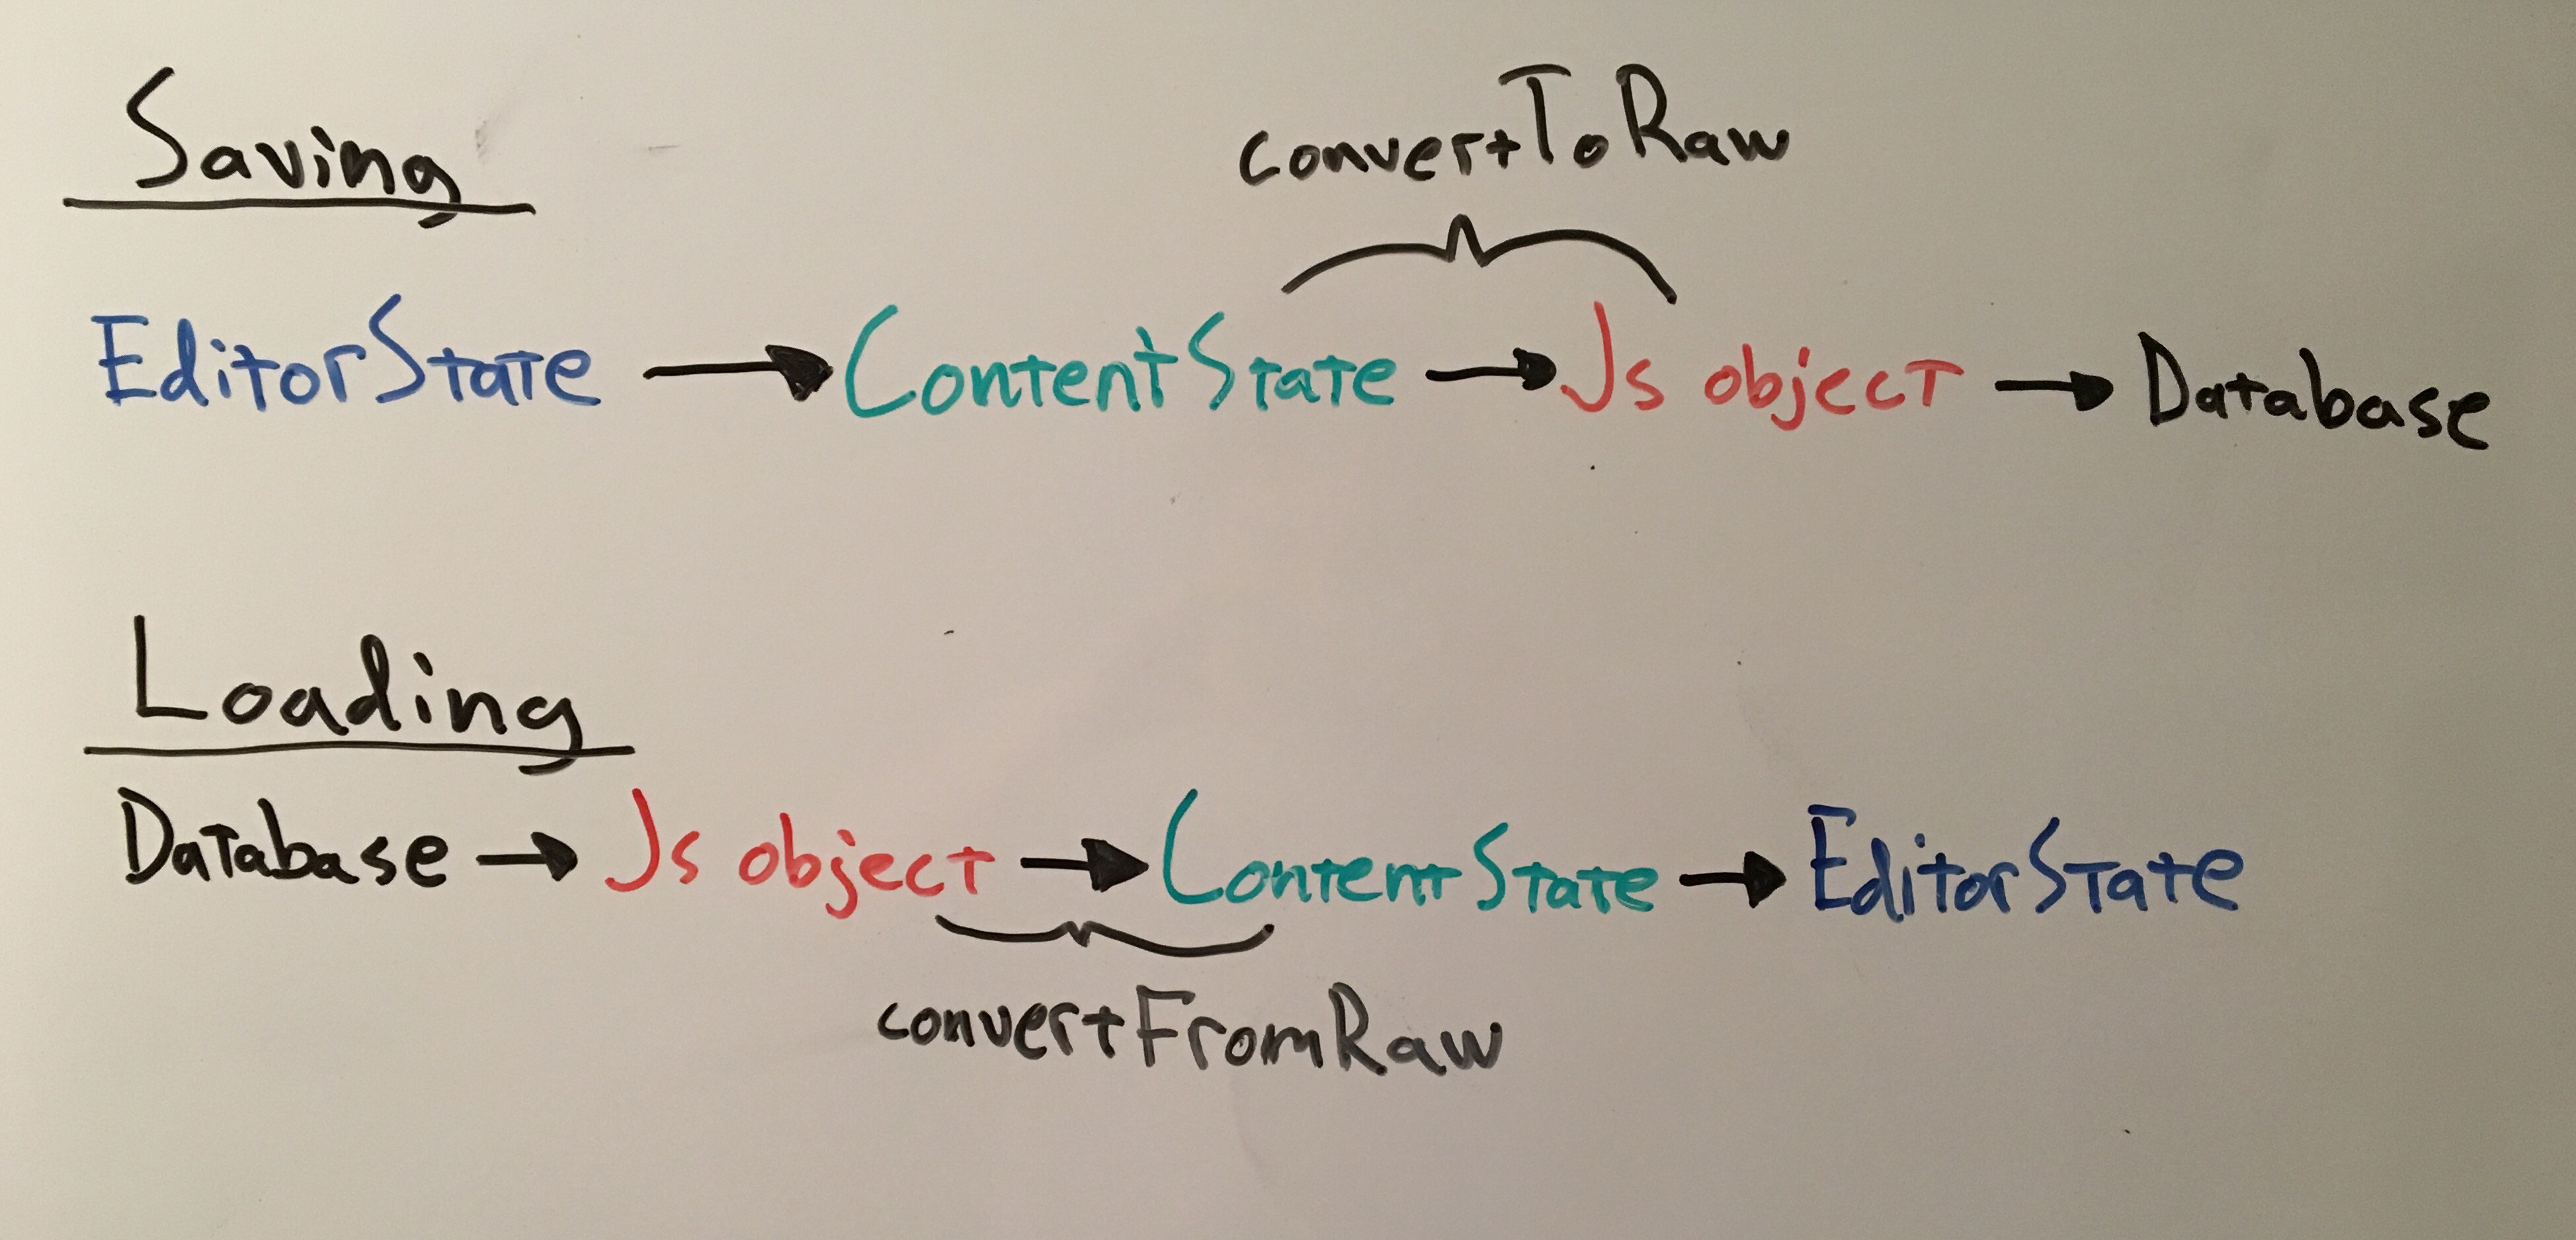 Saving
convertToRaw
EditorState → ContentState → Js object → Database
Loading
Database → Js object → ContentState → EditorState
convertFromRaw